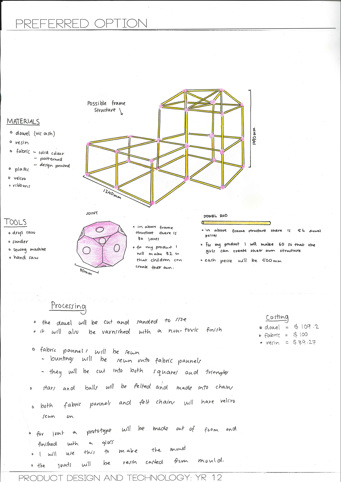 PREFERRED OPTION
Possible frame
structure
MATERIALS
dowel (vic ash)
resin
fabric - solid color
- patterned
- design printed
plastic
velcro
ribbons
1240mm
TOOLS
drop saw
sander
sewing machine
hand saw
JOINT
80mm
in above frame
structure there is
joints
for my product I
will make 32 so
that children can
create their own.
DOWEL ROD
in above frame structure there is 54 dowel
for my product I will make 60 so that the
girls can create their own structure
each peice will be 500mm
Processing
the dowel will be cut and sanded to size
it will also be varnished with a non-toxic finish
fabric pannels will be sewn
- bunting will be sewn onto fabric pannels
- they will be cut into both squares and triangles
stars and balls will be felted and made into chain
both fabric pannels and felt chain will have velcro
sewn on
for joint a prototype will be made out of foam and
finished with a gloss
I will use this to make the mould
the joints will be resin casted from mould.
Costing
dowel = $ 109.2
fabric = $ 100
resin = $ 39.29
PRODUCT DESIGN AND TECHNOLOGY YR 12